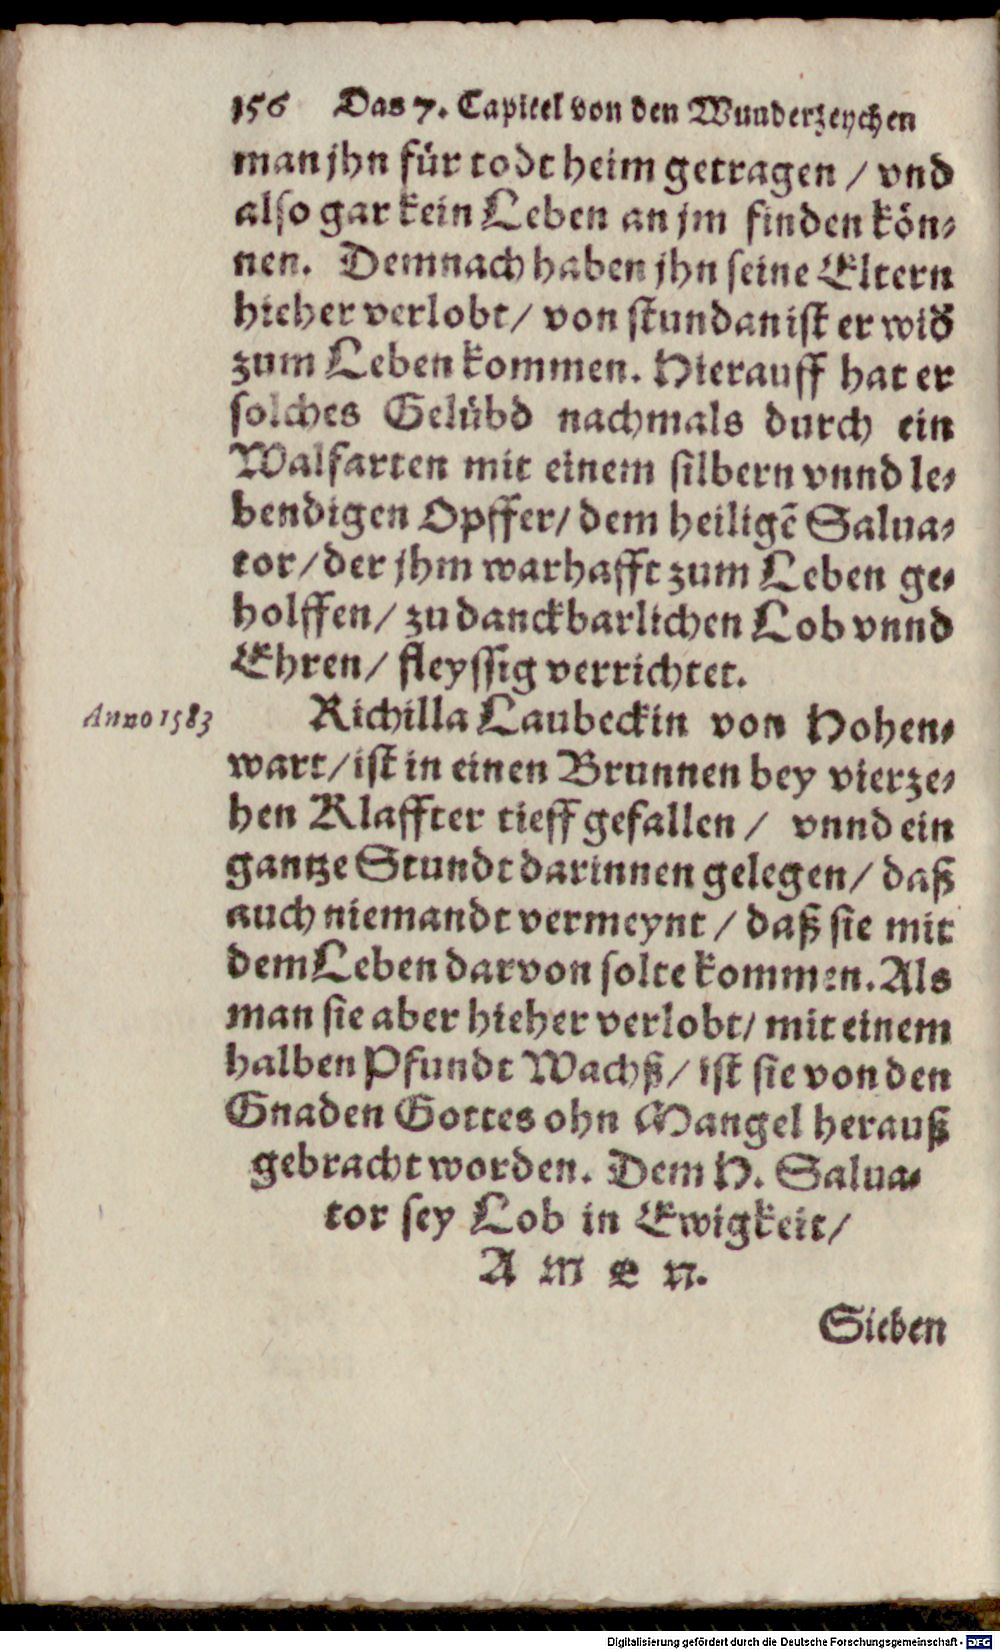 156 Das 7. Capitel von den Wunderzeychen
man jhn für todt heim getragen / vnd
also gar kein Leben an jm finden kön-
nen. Demnach haben jhn seine Eltern
hieher verlobt / von stundan ist er wid̄
zum Leben kommen. Hierauff hat er
solches Gelübd nachmals durch ein
Walfarten mit einem silbern vnnd le-
bendigen Opffer / dem heiligẽ Salua-
tor / der jhm warhafft zum Leben ge-
holffen / zu danckbarlichen Lob vnnd
Ehren / fleyssig verrichtet.
Anno 1583 Richilla Laubeckin von Hohen-
wart / ist in einen Brunnen bey vierze-
hen Klaffter tieff gefallen / vnnd ein
gantze Stundt darinnen gelegen / daß
auch niemandt vermeynt / daß sie mit
dem Leben darvon solte kommen. Als
man sie aber hieher verlobt / mit einem
halben Pfundt Wachß / ist sie von den
Gnaden Gottes ohn Mangel herauß
gebracht worden. Dem H. Salua-
tor sey Lob in Ewigkeit /
A M E N.
Sieben
Digitalisierung gefördert durch die Deutsche Forschungsgemeinschaft - DFG